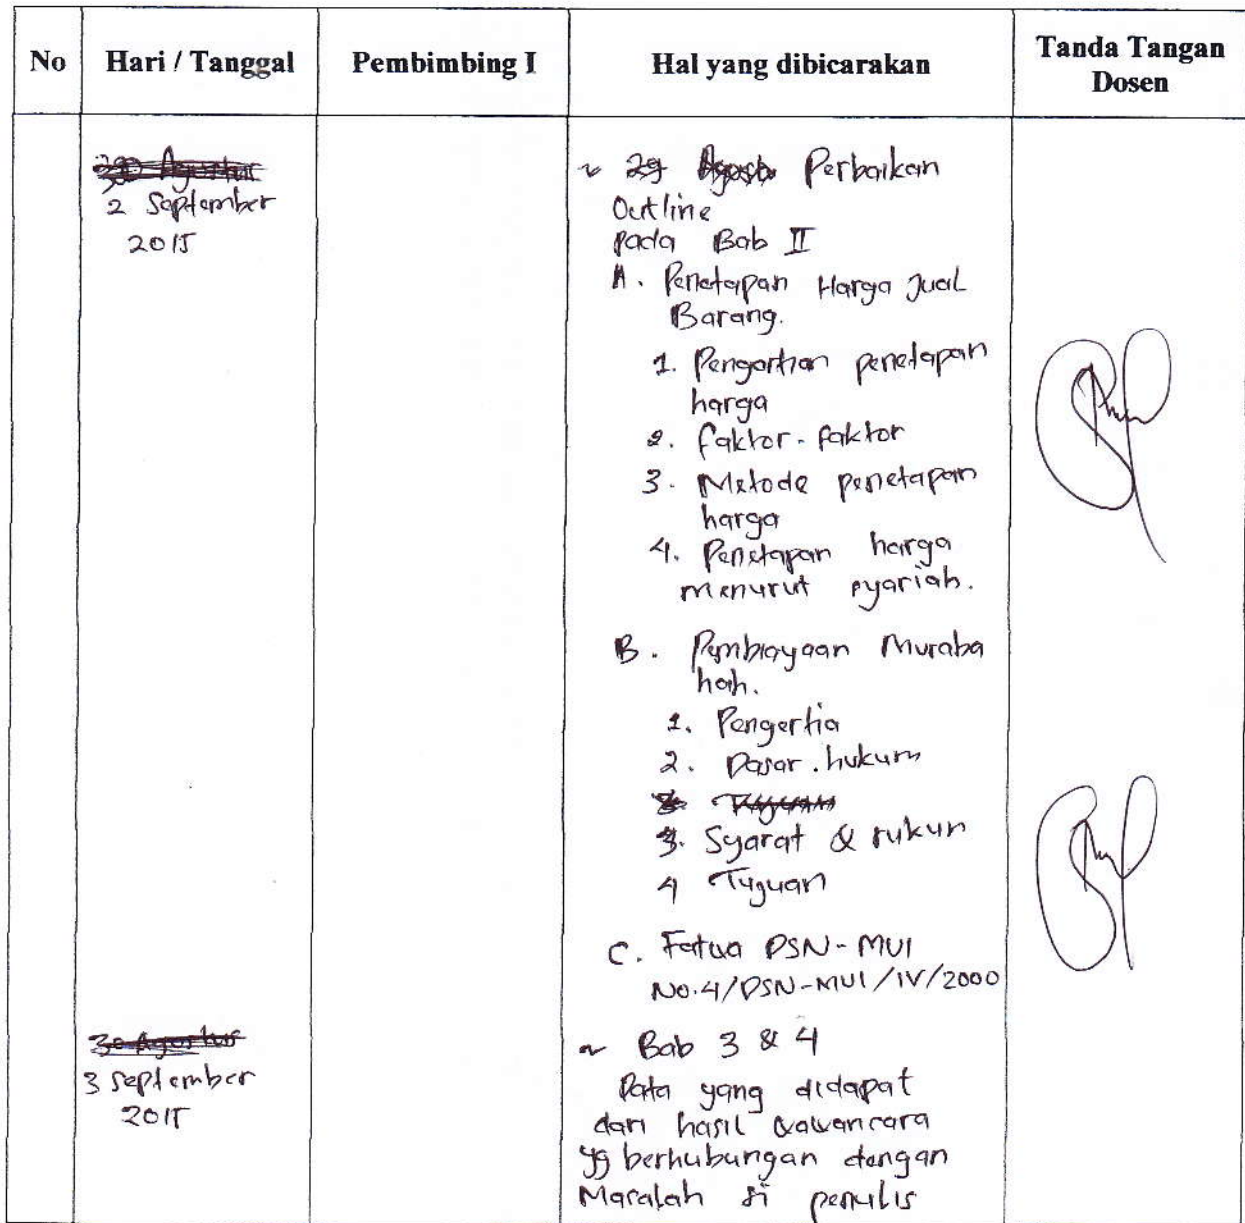 No
Hari / Tanggal
Pembimbing I
Hal yang dibicarakan
Tanda Tangan
Dosen
30 Agustus
2 September
2015
29 Perbaikan
Outline
pada Bab II
A. Penetapan Harga Jual
Barang.
1. Pengertian penetapan
harga
2. faktor-faktor
3. Metode penetapan
harga
4. Penetapan harga
menurut syariah.
B. Pembiayaan Muraba
hah.
1. Pengertia
2. Dasar hukum
3 Tujuan
3. Syarat & rukun
4 Tujuan
C. Fatwa DSN-MUI
No.4/DSN-MUI/IV/2000
30 Agustus
3 September
2015
Bab 3 & 4
Data yang didapat
dari hasil wawancara
yg berhubungan dengan
Masalah si penulis